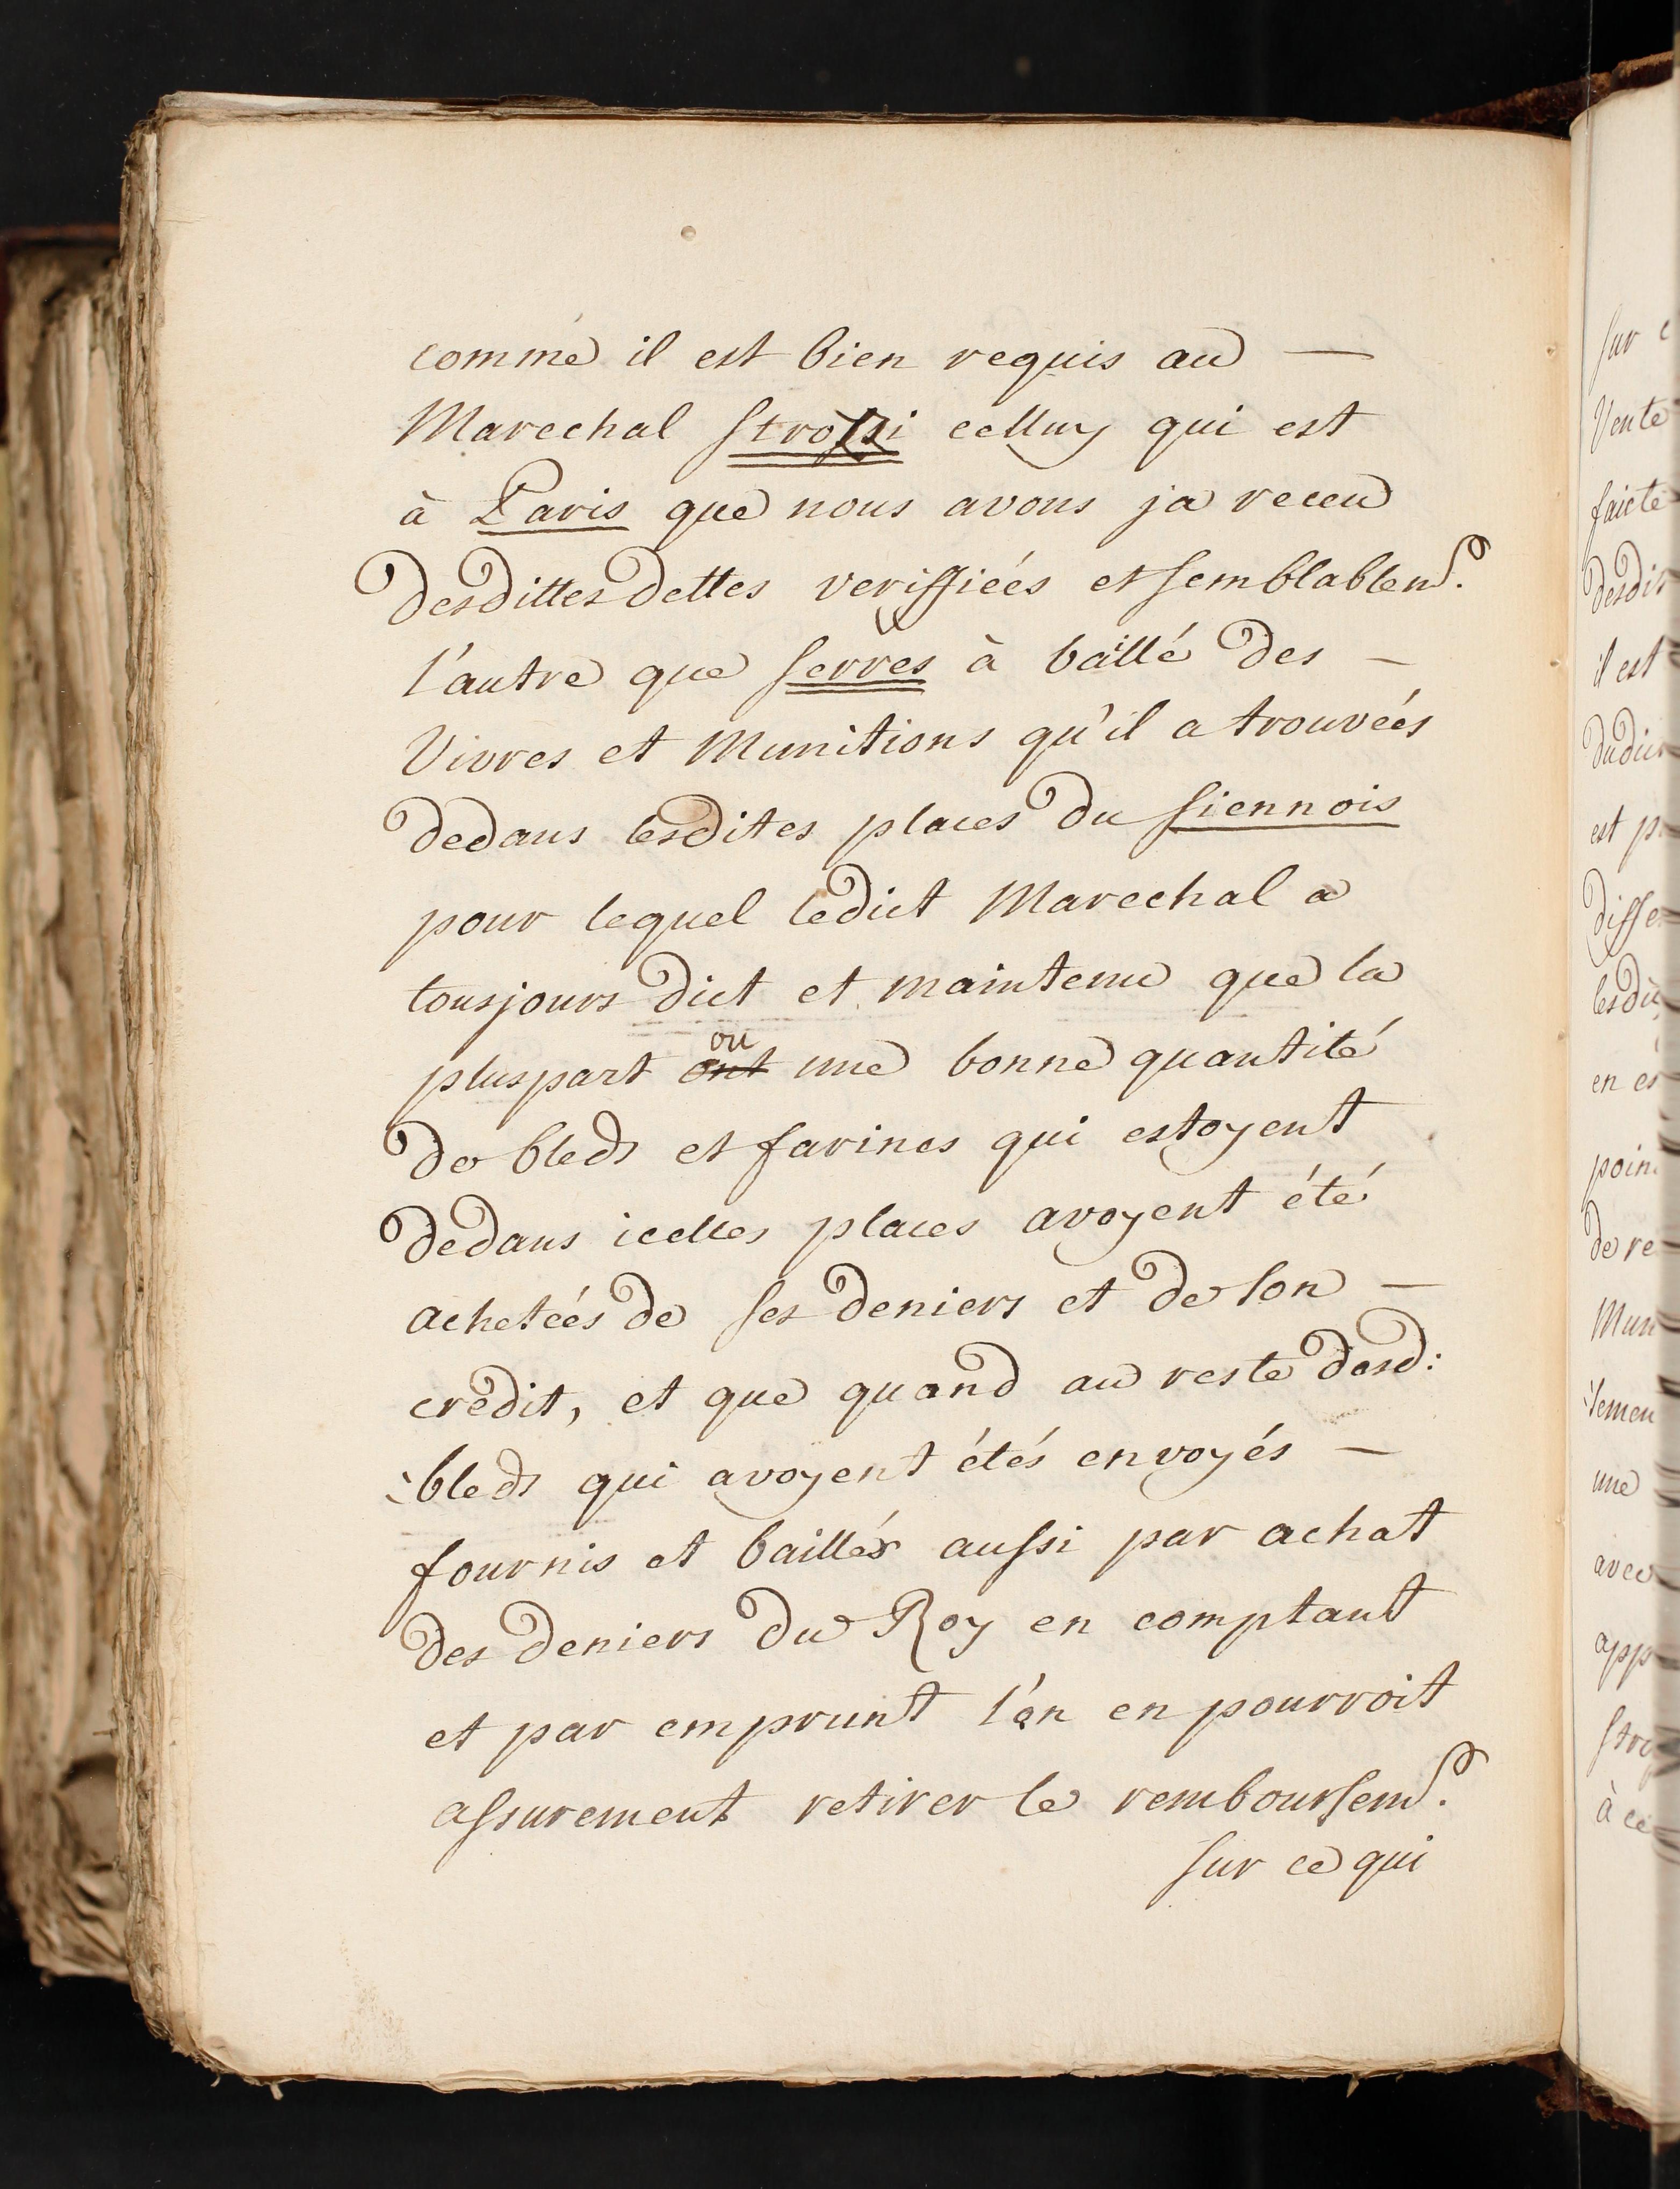 comme il est bien requis au —
Marechal Strozzi celluy qui est
à Paris que nous avons ja receu
desdittes dettes veriffiéés et semblablem.
l'autre que Serres à baillé des —
Vivres et Munitions qu'il a trouvéés
dedans lesdites places du Siennois
pour lequel ledict Marechal a
tousjours dict et maintenu que la
pluspart ont ou une bonne quantité
de bleds et farines qui estoyent
dedans icelles places avoyent été
achetéés de ses deniers et de son —
credit, et que quand au reste desd:
bleds qui avoyent étés envoyés —
fournis et baillés aussi par achat
des deniers du Roy en comptant
et par emprunt l'on en pourroit
assurement retirer le remboursem.
sur ce qui
sur
Vente
faicte
desdit
il est
dudict
est
en
poin
de re
Mun
une
avec
app
à ce